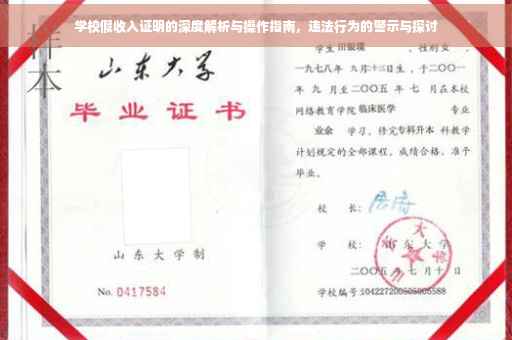 学校假收入证明的深度解析与操作指南，违法行为的警示与探讨
样本
山东大学
毕业证书
山东大学制
No. 0417584
学生 田银瑛 ，性别女，
一九七八年 九月十三日生，于二〇〇一
年 九 月至二〇〇五 年 七 月在本校
网络教育学院 临床医学 专业
业余 学习，修完专科升本 科教学
计划规定的全部课程，成绩合格，准予
毕业。
校 长：
学 校：山东大学
二〇〇五年 七 月十 日
学校编号:104227200505005588